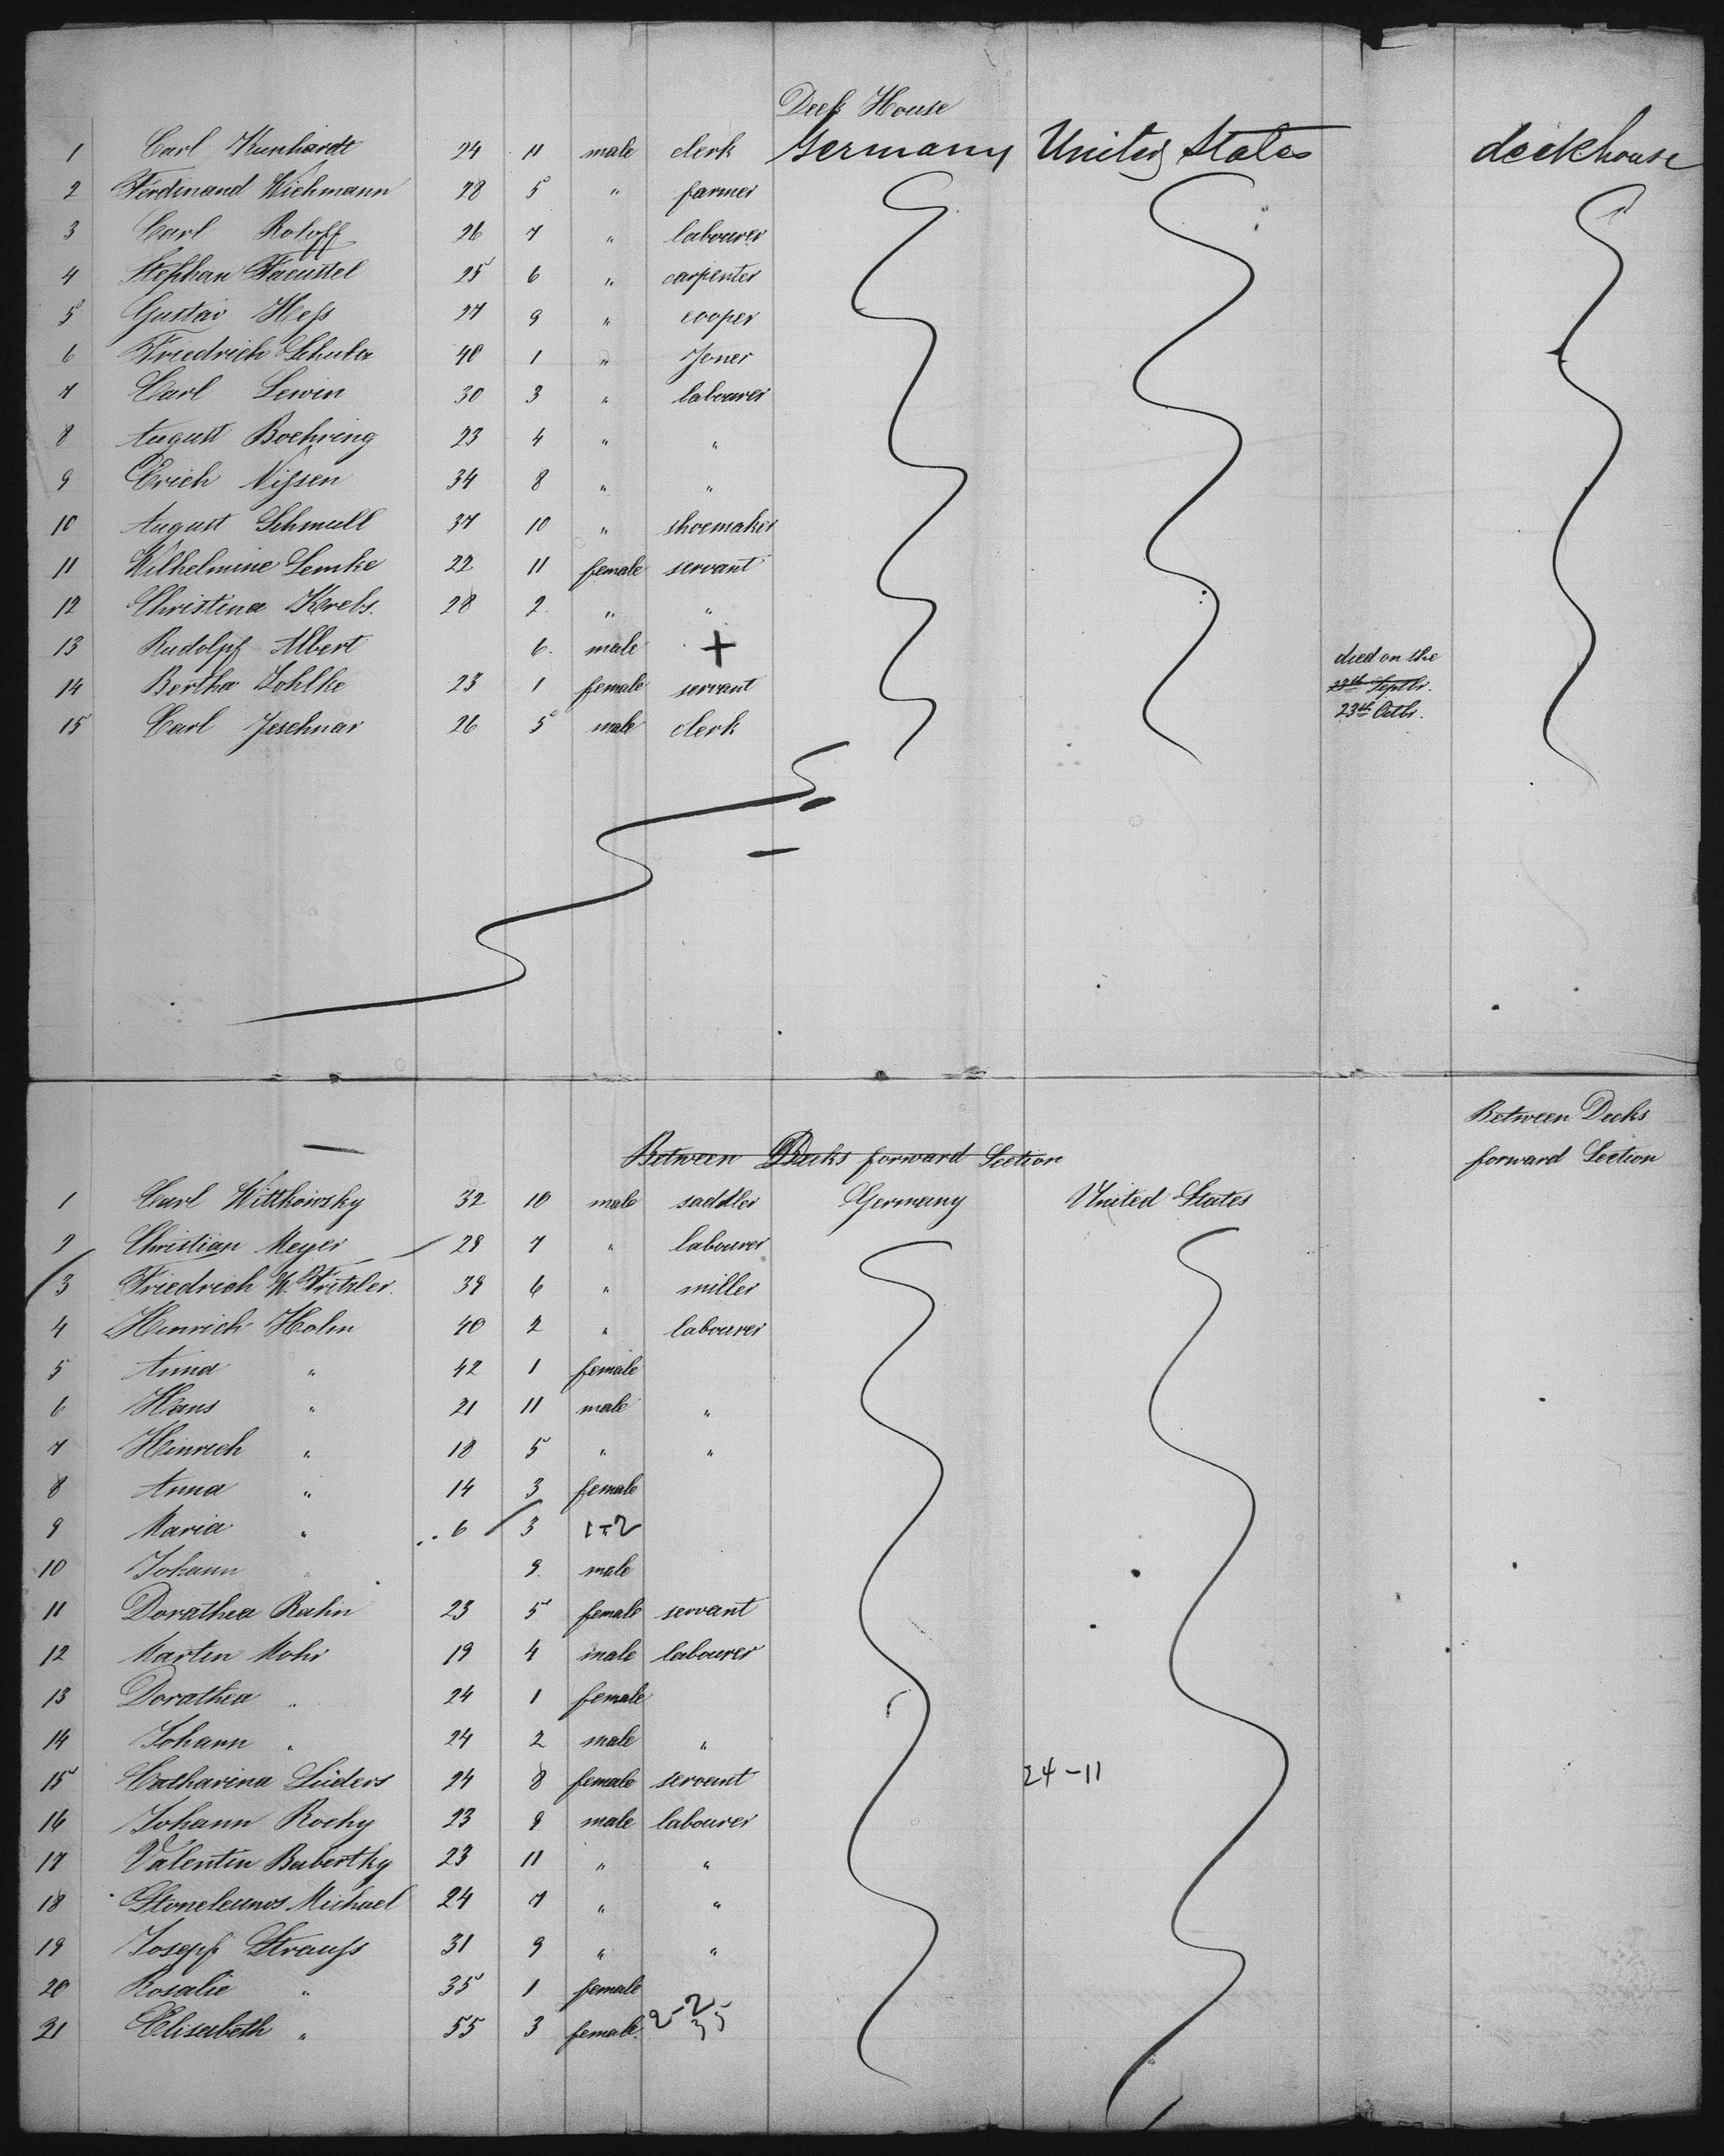 Deck House
1 Carl Kunhardt 24 11 male clerk Germany United States deckhouse
2 Ferdinand Wichmann 28 5 " farmer
3 Carl Roloff 26 7 " labourer
4 Stephan Faeustel 25 6 " carpenter
5 Gustav Heß 27 9 " cooper
6 Friedrich Schulz 40 1 " Joner
7 Carl Lewin 30 3 " labourer
8 August Boehring 23 4 " "
9 Erich Nißen 34 8 " "
10 August Schmull 37 10 " shoemaker
11 Wilhelmine Lemke 22 11 female servant
12 Christina Krebs. 28 2. " "
13 Rudolpf Albert 6. male + died on the
14 Bertha Zohlke 23 1 female servant 23th Septbr.
15 Carl Jeschnar 26 5 male clerk 23th Octbr.
Between Decks
Between Decks forward Section forward Section
1 Carl Wittkowsky 32 10 male saddler Germany United States
2 Christian Meyer 28 7 " labourer
3 Friedrich W. Fritzler. 39 6 " miller
4 Hinrich Holm 40 2 " labourer
5 Anna " 42 1 female
6 Hans " 21 11 male "
7 Hinrich " 18 5 " "
8 Anna " 14 3 female
9 Maria " 6 3 1-2
10 Johann " 9. male
11 Dorathea Rahn 23 5 female servant
12 Martin Mohr 19 4 male labourer
13 Dorathea " 24 1 female
14 Johann " 24 2 male "
15 Catharina Lüders 24 8 female servant 24-11
16 Johann Rochy 23 9 male labourer
17 Valentin Bubertky 23 11 " "
18 Michael 24 7 " "
19 Josepf Strauß 31 9 " "
20 Rosalie " 35 1 female
21 Elisabeth " 55 3 female. 2-2
35